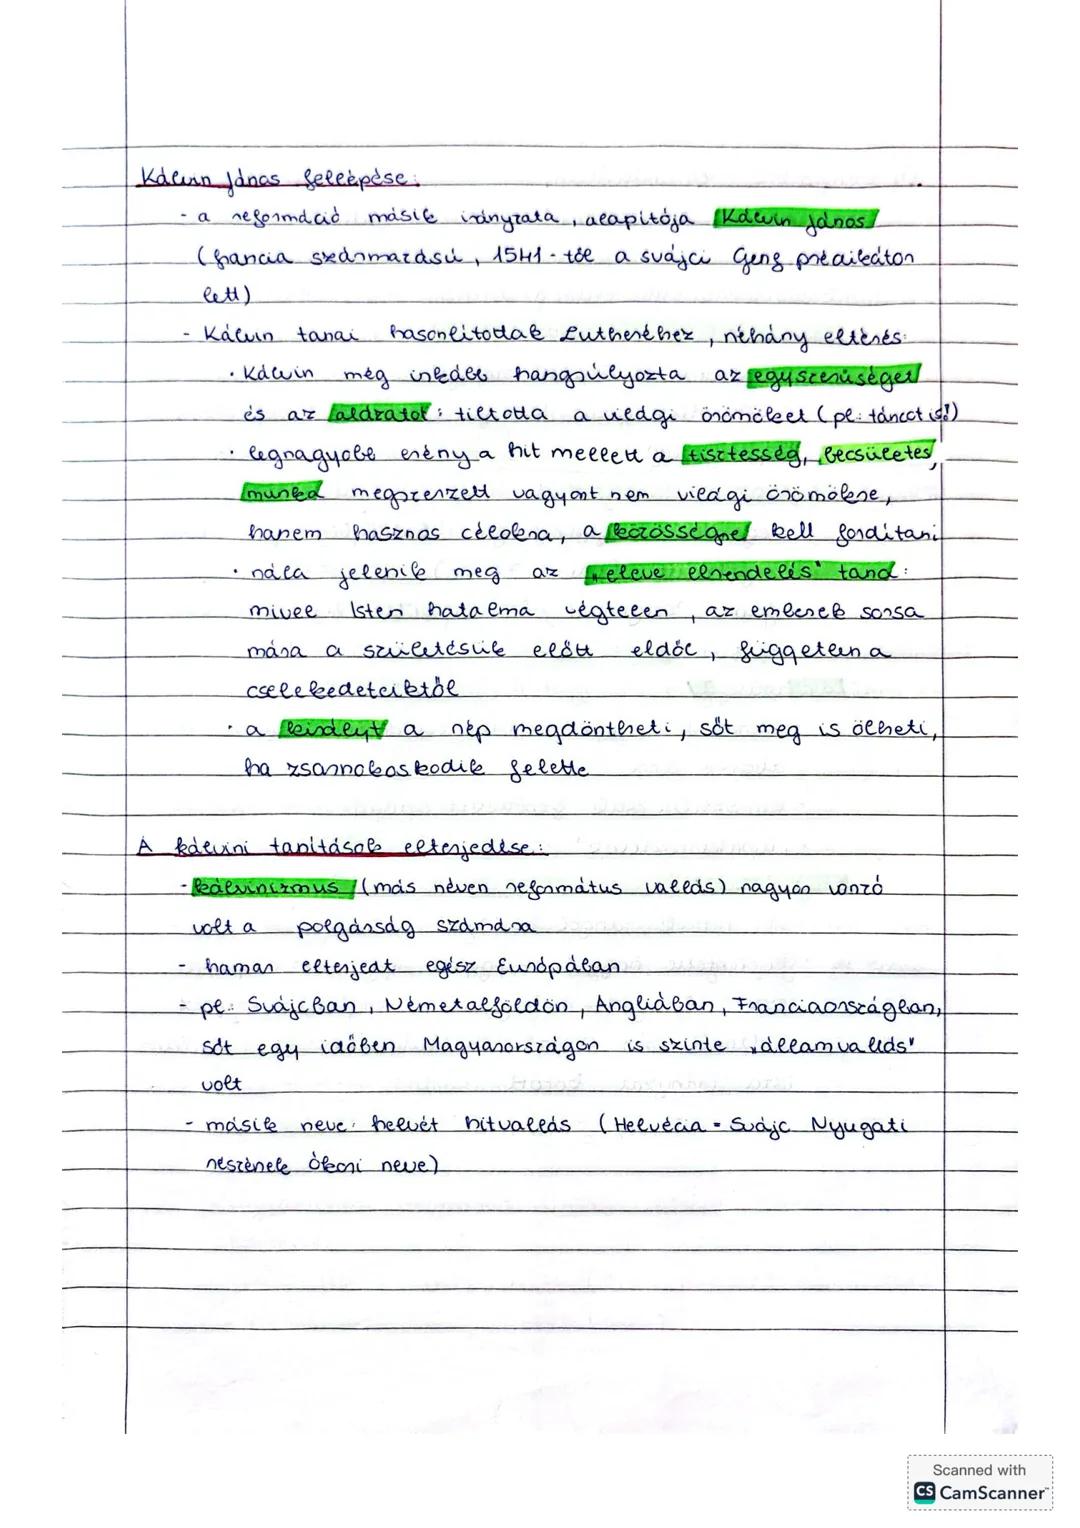 Kálvin János fellépése:
- a reformáció másik irányzata, alapítója Kálvin János
(francia származású, 1541-től a svájci Genf prédikátor
lett)
- Kálvin tanai hasonlítottak Lutheréhez, néhány eltérés:
· Kálvin még inkább hangsúlyozta az egyszerűséget
és az alázatot: tiltotta a világi örömöket (pl: táncot is!)
· legnagyobb erény a hit mellett a tisztesség, becsületes
munka megszerzett vagyont nem világi örömökre,
hanem hasznos célokra, a közösségre kell fordítani
· nála jelenik meg az „eleve elrendelés" tana:
mivel Isten hatalma végtelen, az emberek sorsa
mára a születésük előtt eldől, független a
cselekedeteiktől
· a királyt a nép megdöntheti, sőt meg is ölheti,
ha zsarnokoskodik felette
A kálvini tanítások elterjedése:
- kálvinizmus (más néven református vallás) nagyon vonzó
volt a polgárság számára
- hamar elterjedt egész Európában
- pl: Svájcban, Németalföldön, Angliában, Franciaországban,
sőt egy időben Magyarországon is szinte „államvallás"
volt
- másik neve: helvét hitvallás (Helvécia = Svájc Nyugati
részének ókori neve)
Scanned with
CS CamScanner